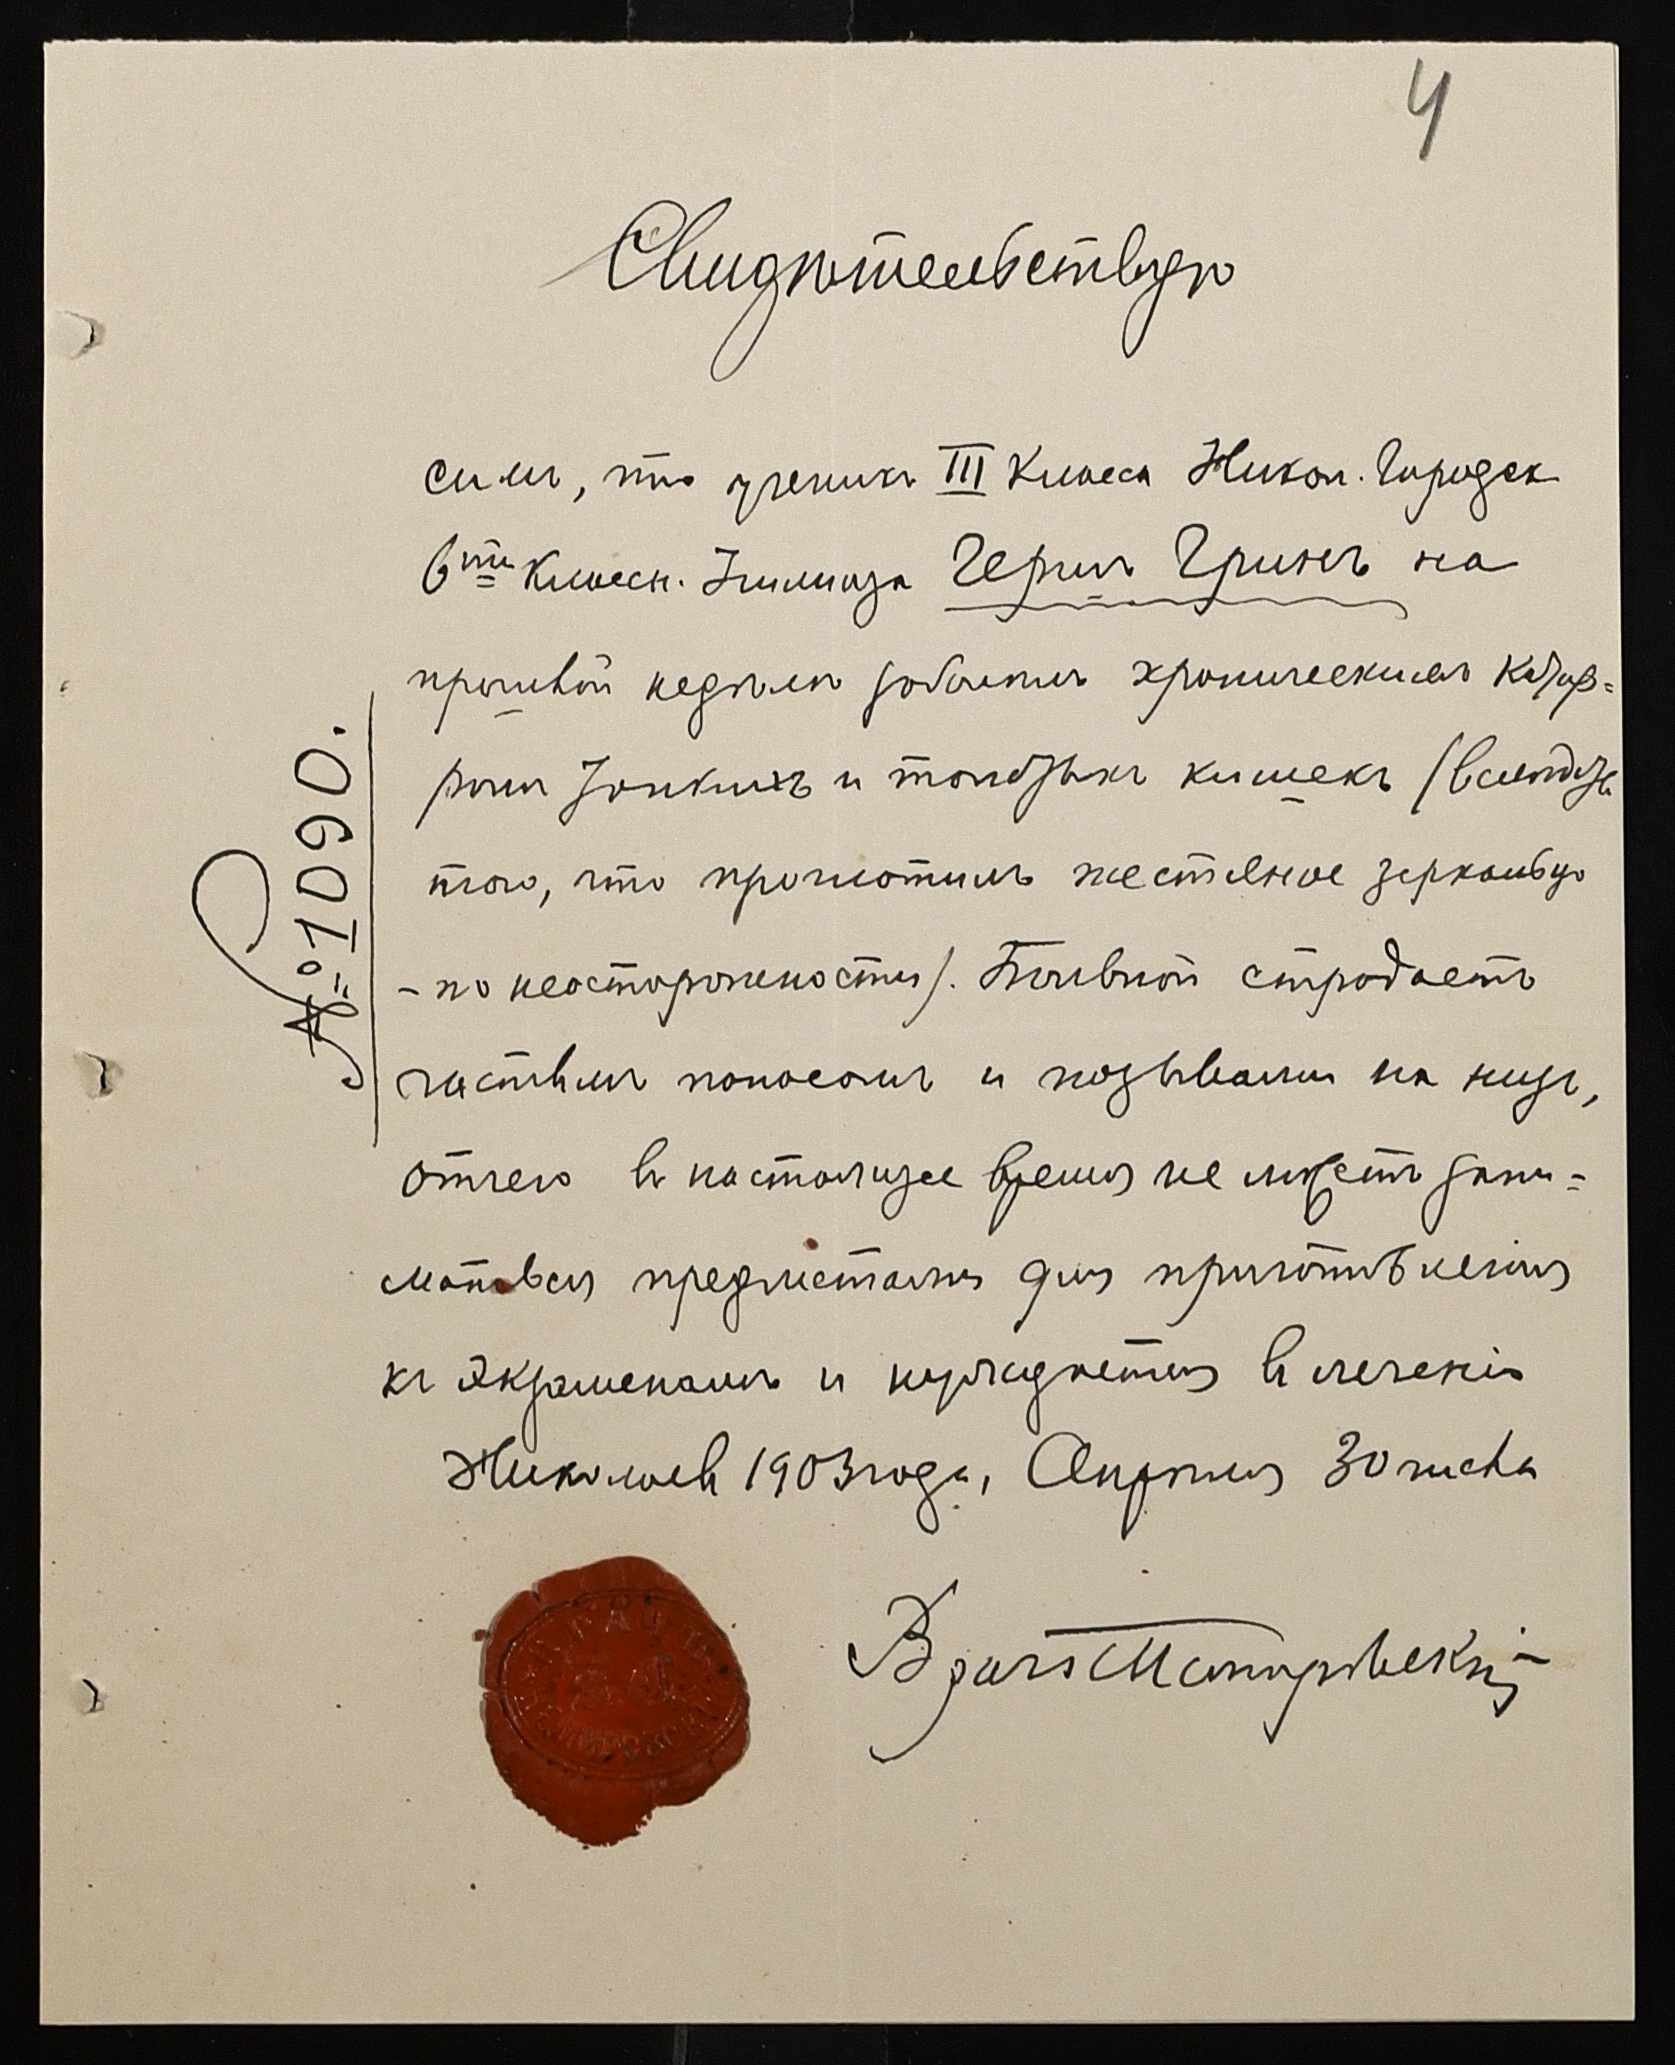 4
Свидѣтельствую
симъ, что ученикъ III класса Никол. Городск
6ти класн. Училища Герш Гринъ на
прошлой недѣли заболѣлъ хроническимъ катар=
ромъ тонкихъ и толстыхъ кишекъ (вслѣдствіе
того, что проглотилъ жестяное зеркальцо
- по неосторожности). Больной страдаетъ
частымъ поносомъ и позывами на низъ,
отчего въ настоящее время не можетъ зани=
маться предметами для приготовленія
къ экзаменамъ и нуждается въ леченіи
Николаевъ 1903 года, Апрѣля 30 числа
Врачъ
№ 1090.